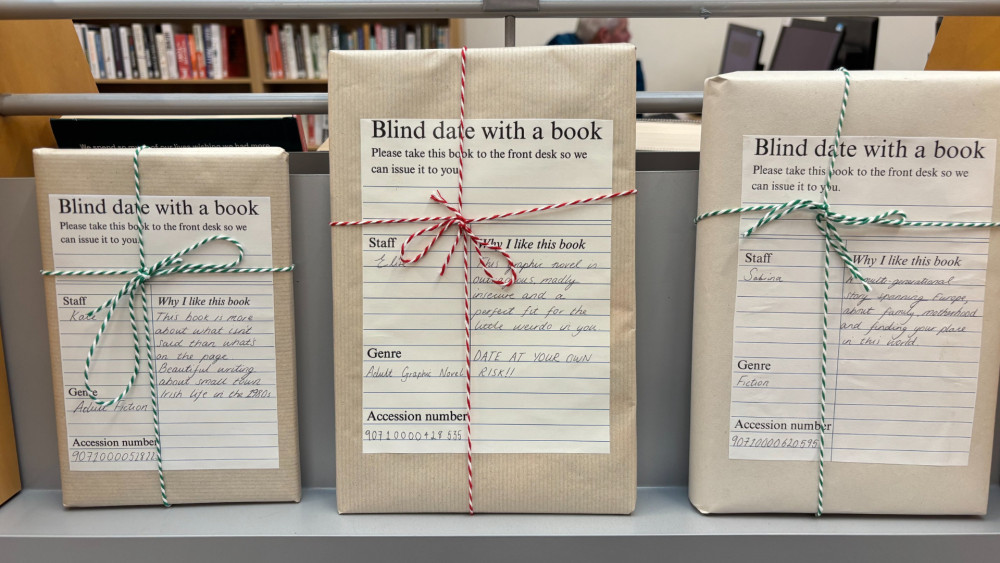 We spend so
our lives wishing we had more
Blind date with a book
Please take this book to the front desk so we
can issue it to you.
Staff
Why I like this book
Kate
This book is more
about what isn't
said than what's
on the page
Beautiful writing
about small town
Irish life in the 1980s
Genre
Adult Fiction
Accession number
Blind date with a book
Please take this book to the front desk so we
can issue it to you
Staff
Why I like this book
This graphic novel is
madly
insecure and a
perfect fit for the
little weirdo in you
DATE AT YOUR OWN
RISK!!
Genre
Adult Graphic Novel
Accession number
Blind date with a book
Please take this book to the front desk so we
can issue it to you.
Staff
Why I like this book
Sabina
A multi generational
story spanning Europe,
about family, motherhood
and finding your place
in this world
Genre
Fiction
Accession number
90710000620595